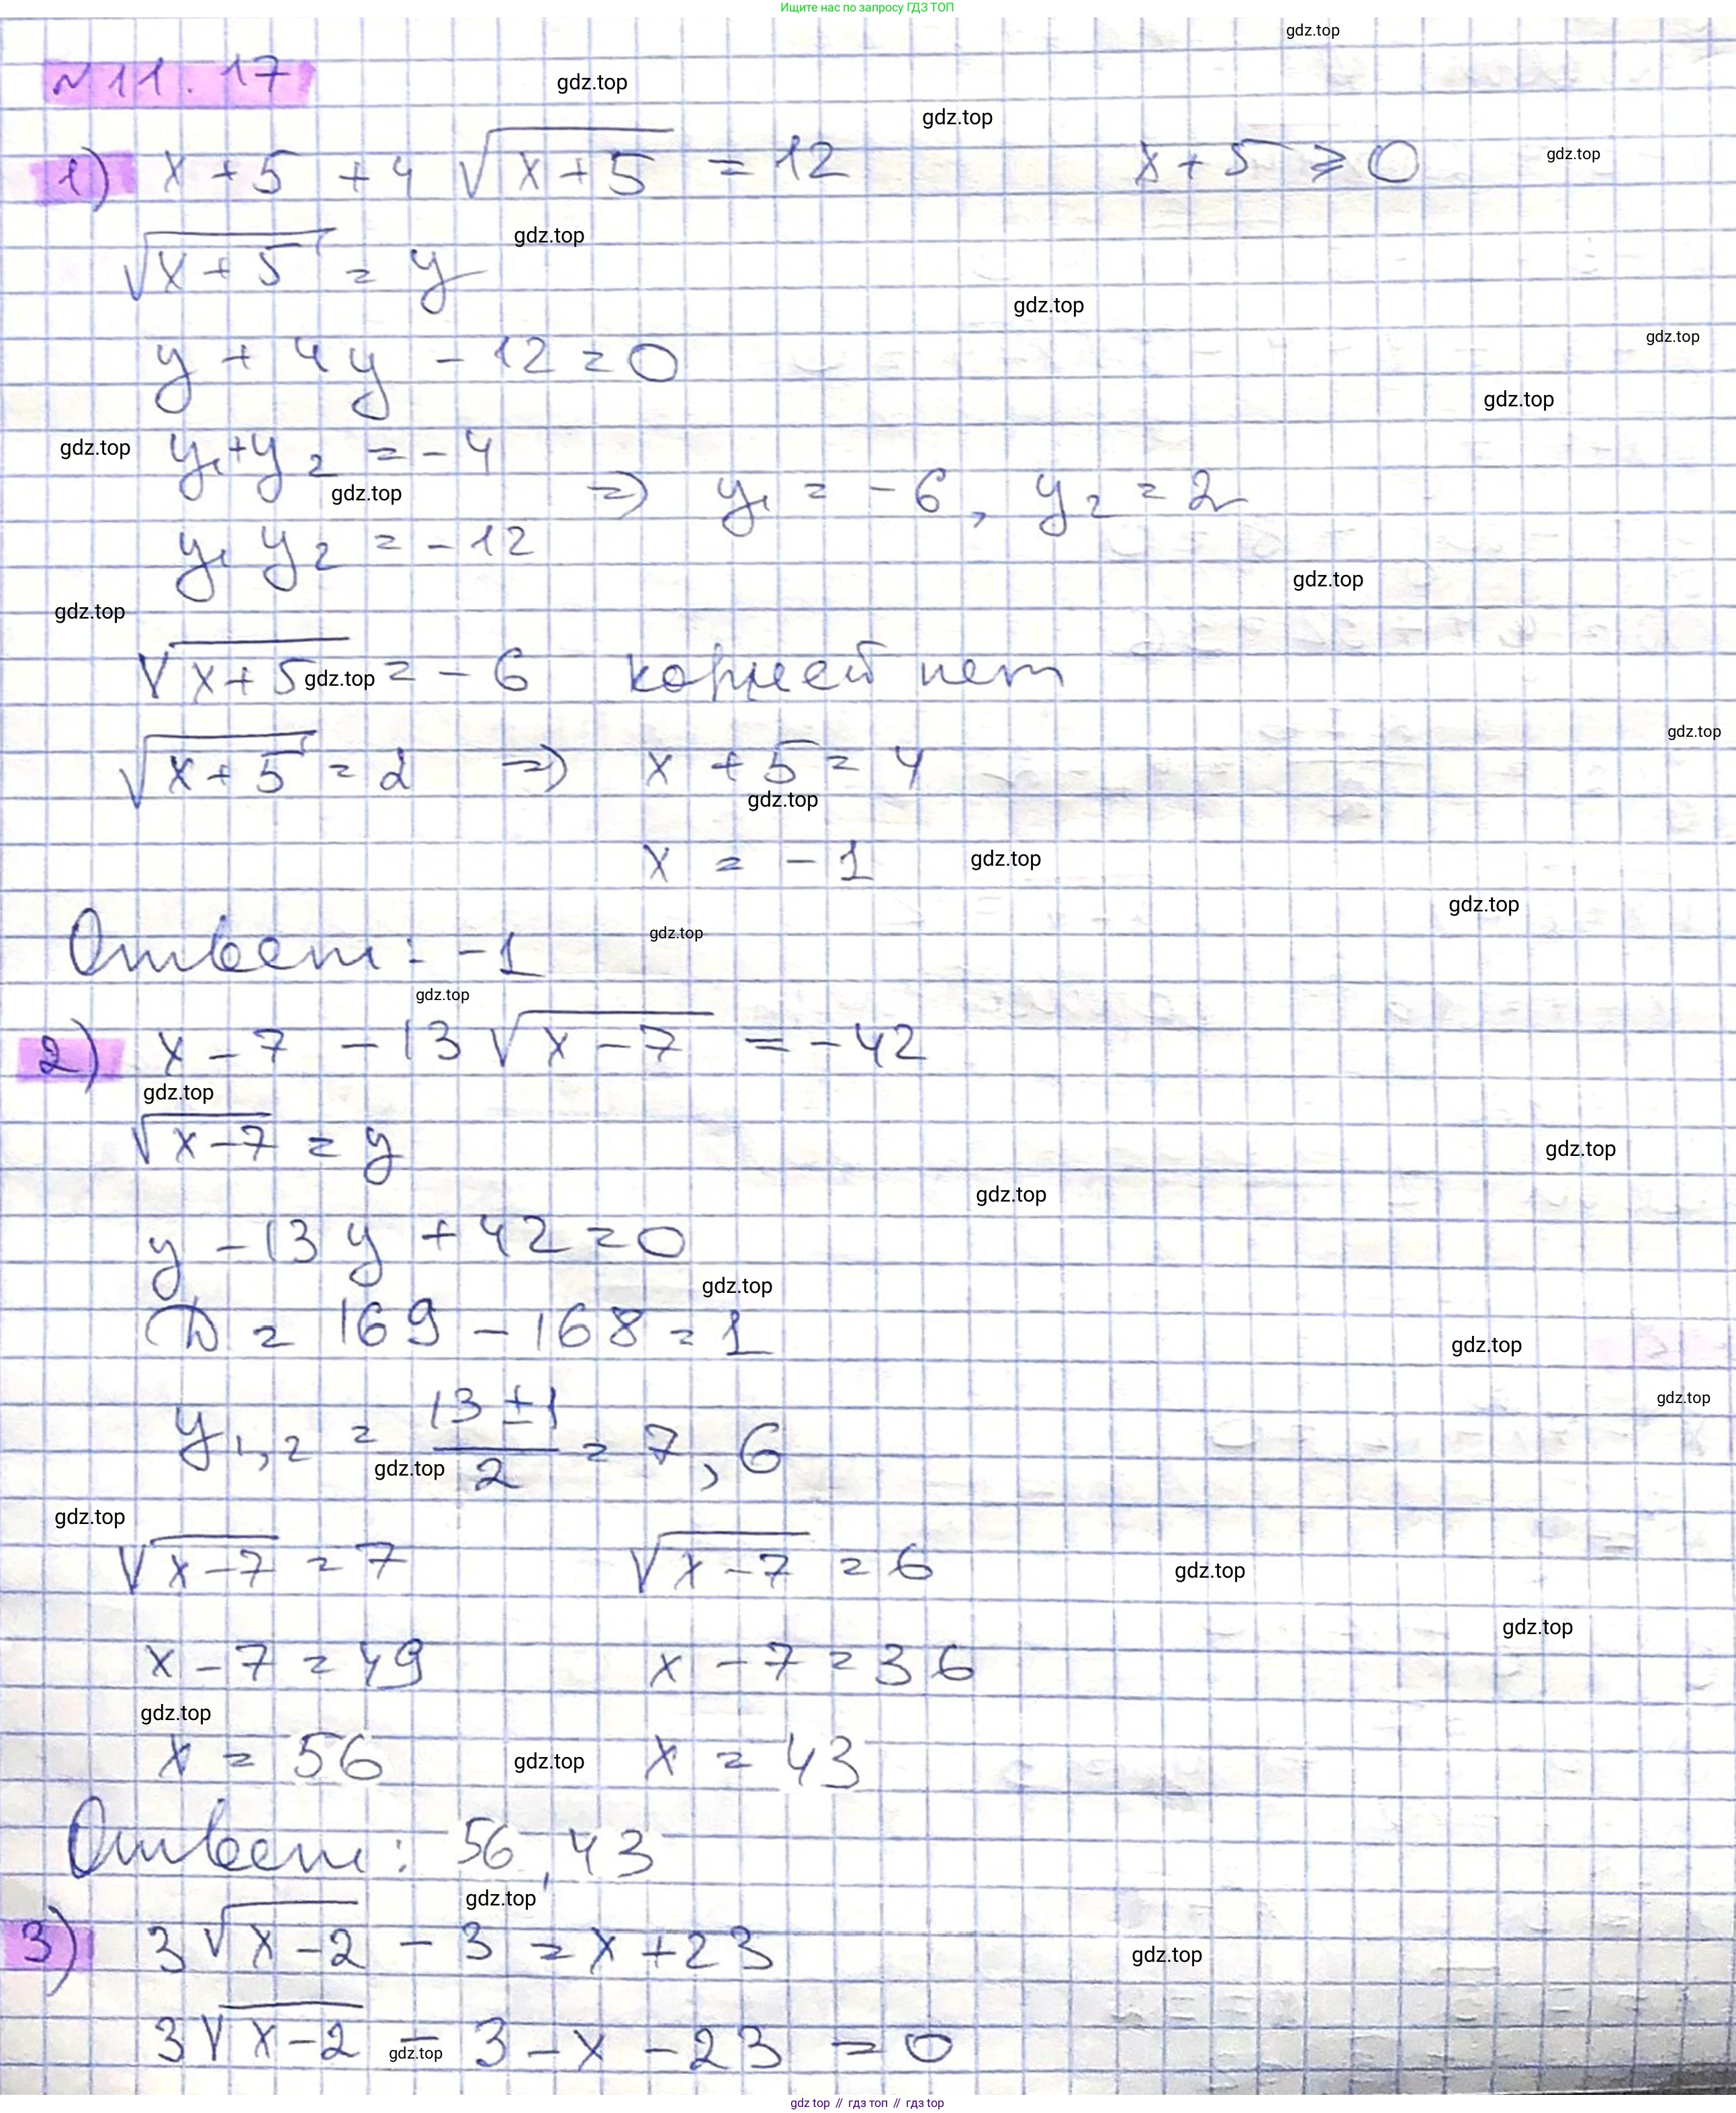 Ищите нас по запросу ГДЗ ТОП
gdz.top
№ 11.17
gdz.top
gdz.top
1) x + 5 + 4 √(x + 5) = 12 x + 5 ⩾ 0
gdz.top
√(x + 5) = y
gdz.top
gdz.top
gdz.top
y + 4y - 12 = 0
gdz.top
y₁ + y₂ = - 4
gdz.top
gdz.top
=> y₁ = - 6, y₂ = 2
y₁ y₂ = - 12
gdz.top
gdz.top
√(x + 5) = - 6 корней нет
gdz.top
gdz.top
√(x + 5) = 2 => x + 5 = 4
gdz.top
x = - 1
gdz.top
gdz.top
Ответ: -1
gdz.top
gdz.top
2) x - 7 - 13 √(x - 7) = - 42
gdz.top
√(x - 7) = y
gdz.top
gdz.top
y - 13 y + 42 = 0
gdz.top
D = 169 - 168 = 1
gdz.top
gdz.top
y₁,₂ = (13 ± 1)/2 = 7, 6
gdz.top
gdz.top
√(x - 7) = 7 √(x - 7) = 6
gdz.top
gdz.top
x - 7 = 49 x - 7 = 36
gdz.top
x = 56 x = 43
gdz.top
Ответ: 56, 43
gdz.top
3) 3 √(x - 2) - 3 = x + 23
gdz.top
3 √(x - 2) - 3 - x - 23 = 0
gdz.top
gdz top // гдз топ // гдз top